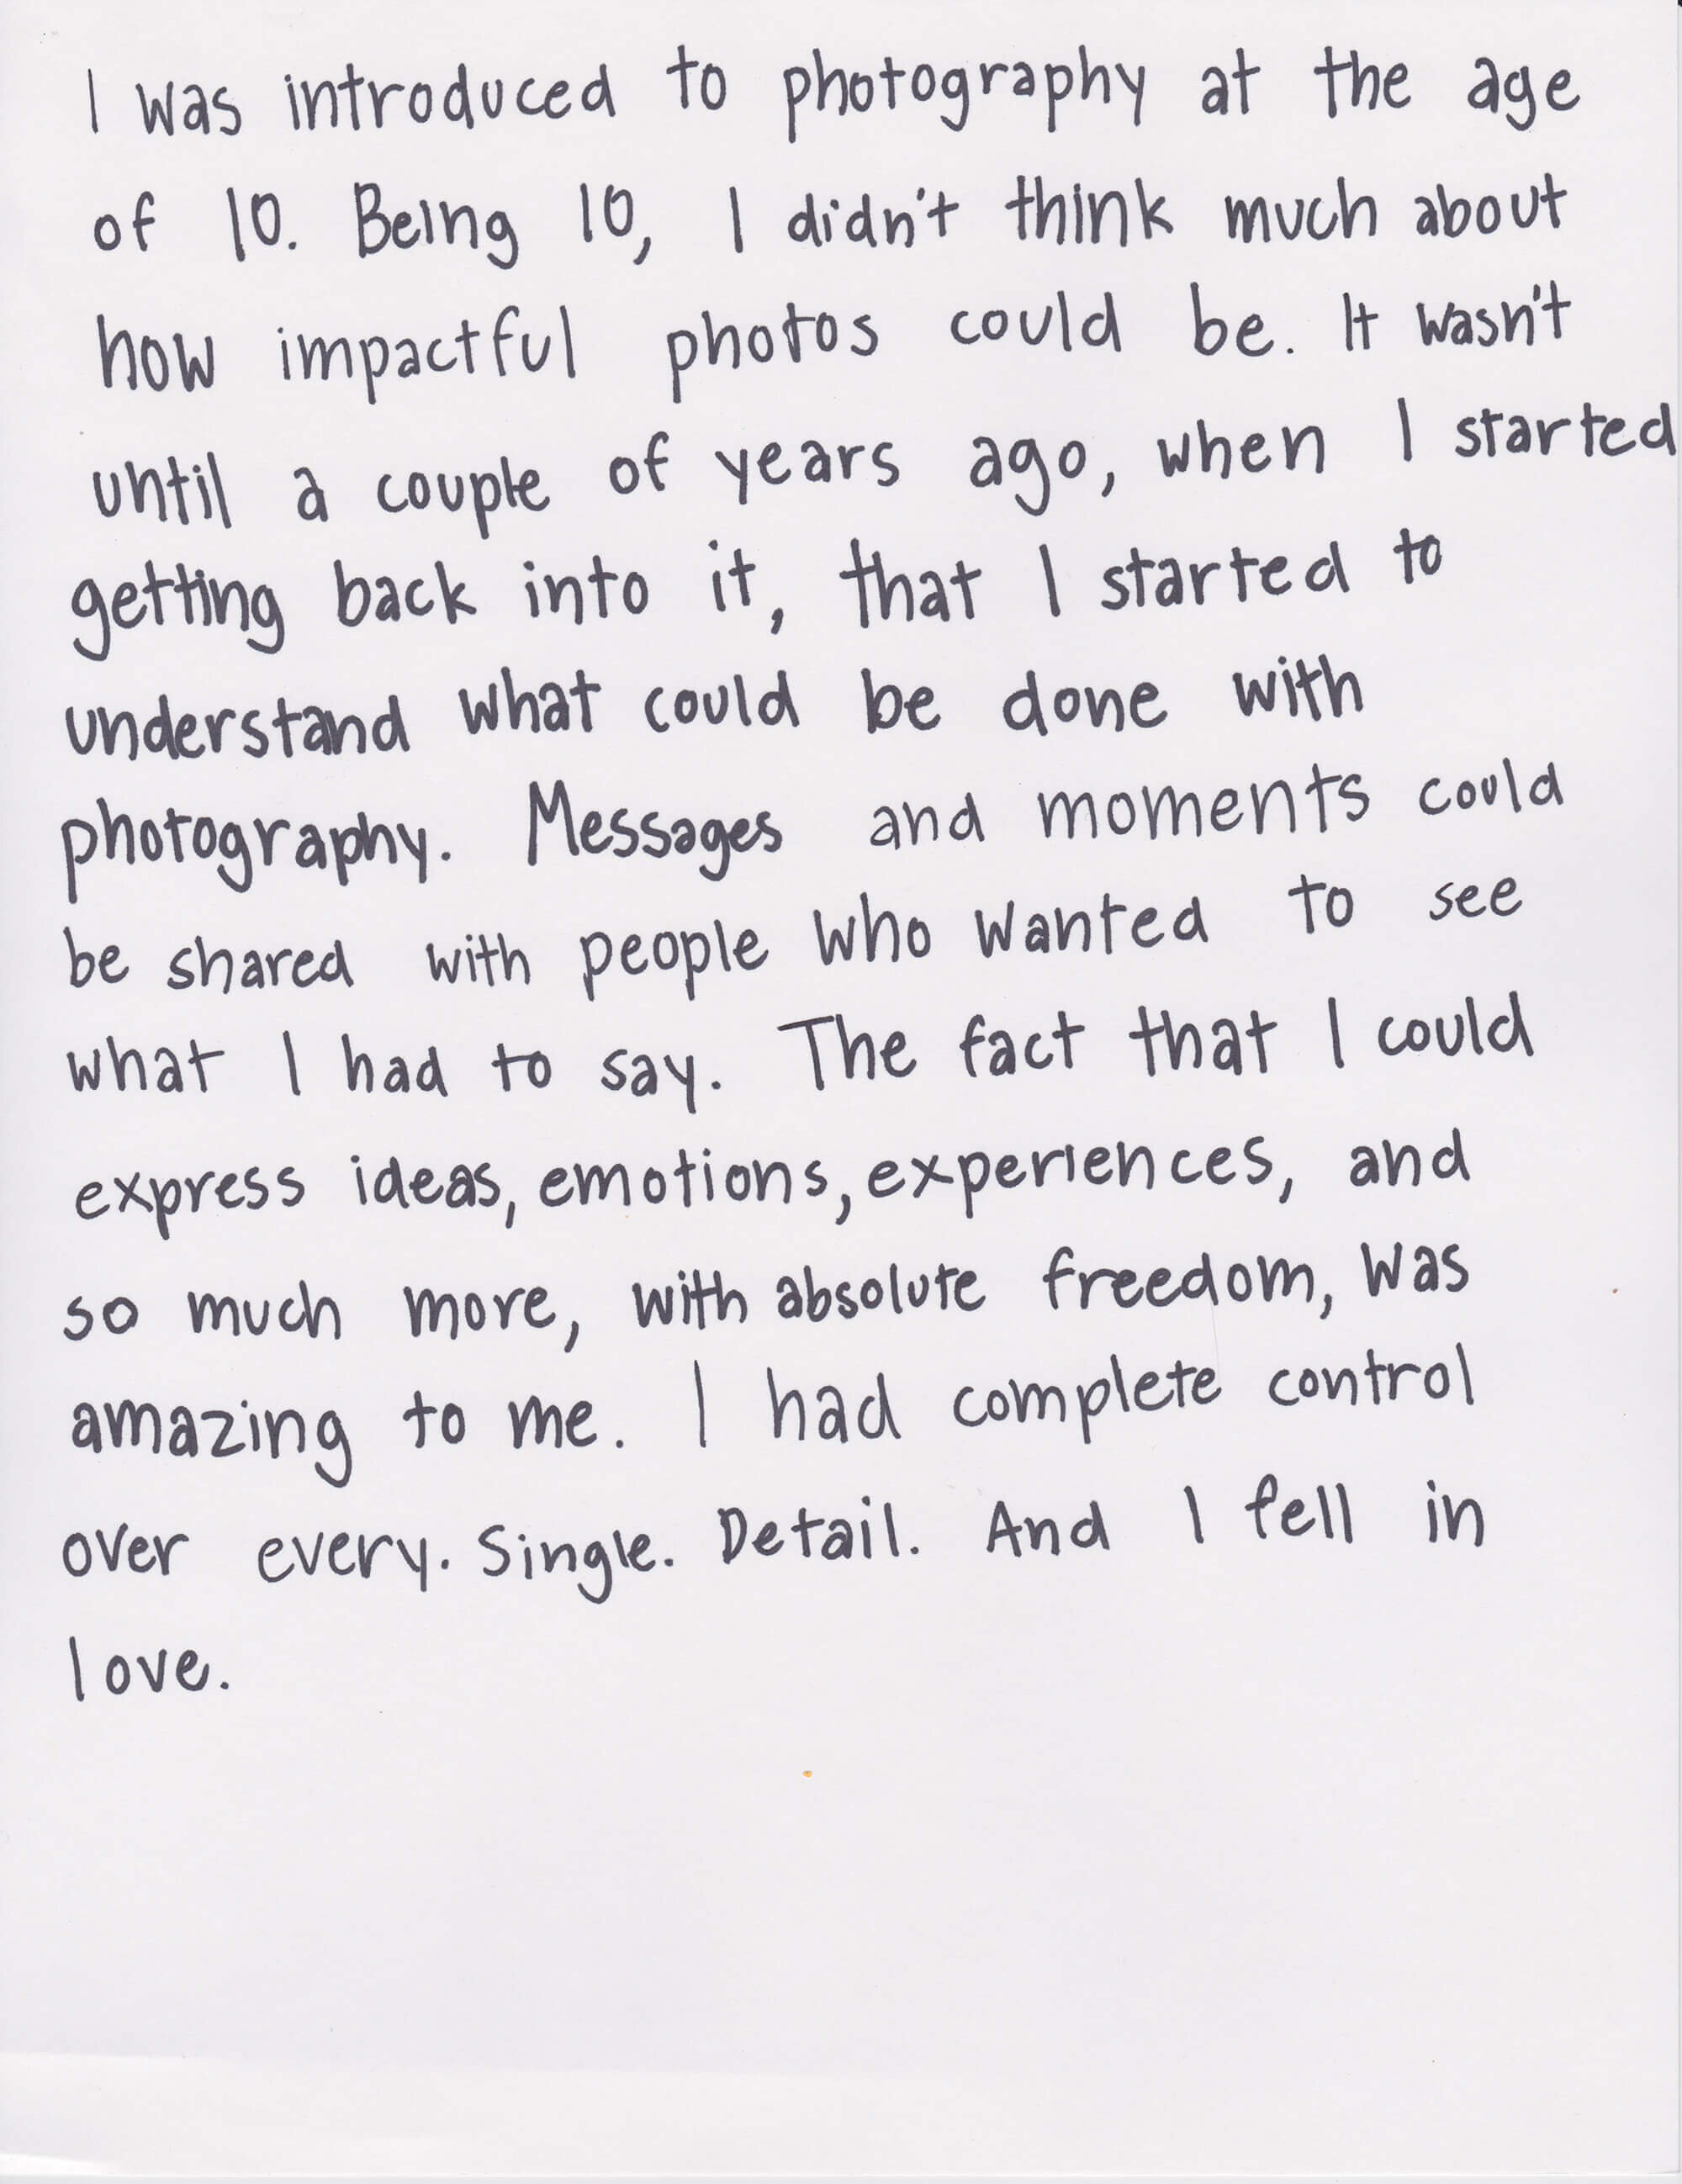 I was introduced to photography at the age
of 10. Being 10, I didn't think much about
how impactful photos could be. It wasn't
until a couple of years ago, when I started
getting back into it, that I started to
understand what could be done with
photography. Messages and moments could
be shared with people who wanted to see
what I had to say. The fact that I could
express ideas, emotions, experiences, and
so much more, with absolute freedom, was
amazing to me. I had complete control
over every. Single. Detail. And I fell in
love.